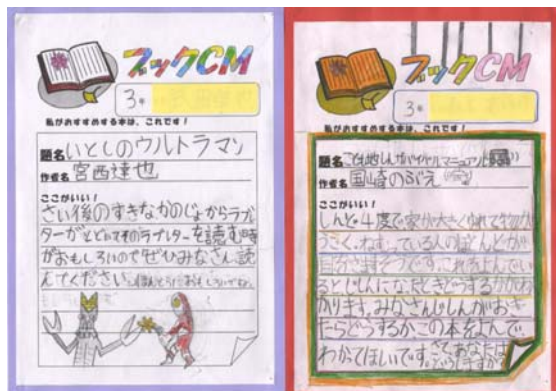 ブックCM
3年
私がおすすめする本は、これです!
題名 いとしのウルトラマン
作者名 宮西達也
ここがいい!
さい後のすきなかのじょからラブレ
ターがとどいてそのラブレターを読む時
がおもしろいのでぜひみなさん読
んでください。
ブックCM
3年
私がおすすめする本は、これです!
題名
作者名 国崎のぶえ
ここがいい!
しんど4度で家が大きくゆれて物が
うごく、ねむっている人のほとんどが
目がさますそうです。これをよんでい
るとじしんになったときどうするかがわ
かります。みなさんじしんがおき
たらどうするかこの本をよんで、
わかってほしいです。